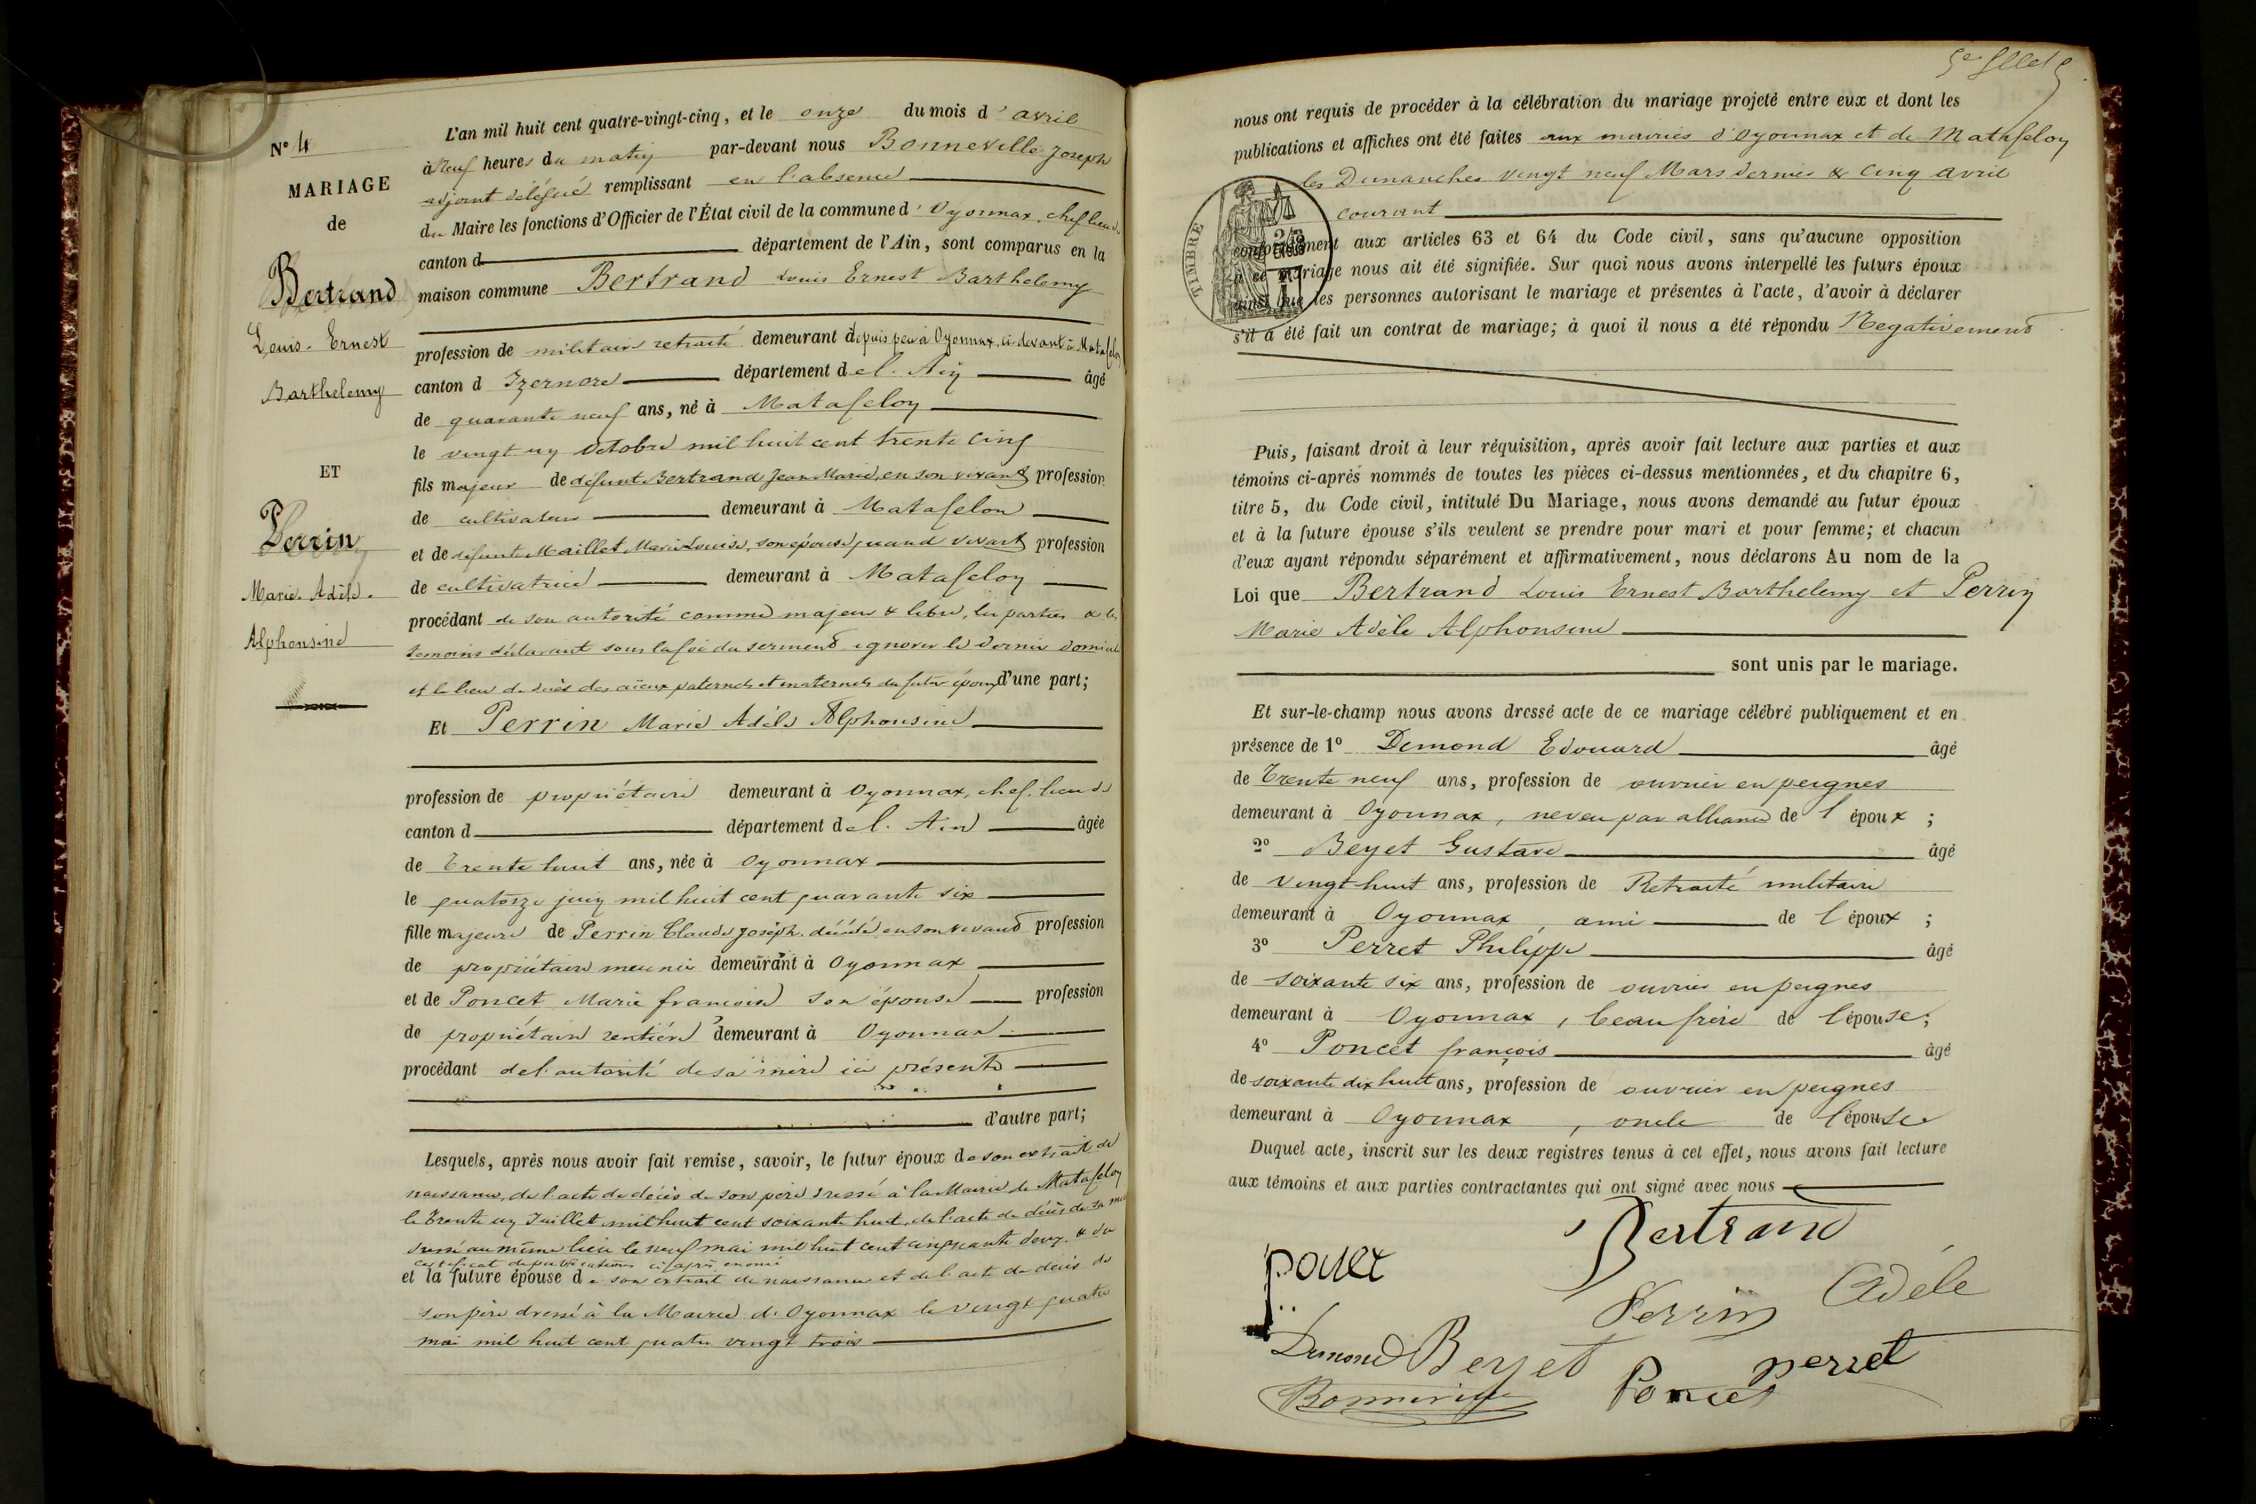 N° 4
MARIAGE
de
Bertrand
Louis Ernest
Barthelemy
ET
Perrin
Marie Adèle
Alphonsine
L'an mil huit cent quatre-vingt-cinq, et le onze du mois d'avril
à Neuf heures du matin par-devant nous Bonneville Joseph
adjoint délégué remplissant en l'absence
du Maire les fonctions d'Officier de l'État civil de la commune d'Oyonnax, chef lieu de
canton d département de l'Ain, sont comparus en la
maison commune Bertrand Louis Ernest Barthelemy
profession de militaire retraité demeurant depuis peu à Oyonnax, ci devant à Matafelon
canton d Izernore département de l'Ain âgé
de quarante neuf ans, né à Matafelon
le vingt un Octobre mil huit cent trente cinq
fils majeur de défunt Bertrand Jean Marie, en son vivant profession
de cultivateur demeurant à Matafelon
et de défunte Maillet Marie Louise, son épouse quand vivait profession
de cultivatrice demeurant à Matafelon
procédant de son autorité comme majeur & libre, les parties & les
temoins déclarant sous la foi du serment ignorer le dernier domicile
et le lieu de décès des aïeux paternels et maternels du futur époux d'une part;
Et Perrin Marie Adèle Alphonsine
profession de propriétaire demeurant à Oyonnax, chef lieu de
canton d département de l'Ain âgée
de Trente huit ans, née à Oyonnax
le quatorze juin mil huit cent quarante six
fille majeure de Perrin Claude Joseph décédé en son vivant profession
de propriétaire meunier demeurant à Oyonnax
et de Poncet Marie françoise son épouse profession
de propriétaire rentière demeurant à Oyonnax
procédant de l'autorité de sa mère ici présente
d'autre part;
Lesquels, après nous avoir fait remise, savoir, le futur époux de son extrait de
naissance, de l'acte de décès de son père dressé à la Mairie de Matafelon
le Trente un Juillet mil huit cent soixante huit, de l'acte de décès de sa mère
dressé au même lieu le neuf mai mil huit cent cinquante deux & du
certificat de publications ci après énoncé
et la future épouse de son extrait de naissance et de l'acte de décès de
son père dressé à la Mairie d'Oyonnax le vingt quatre
mai mil huit cent quatre vingt trois
5e fllet
nous ont requis de procéder à la célébration du mariage projeté entre eux et dont les
publications et affiches ont été faites aux mairies d'Oyonnax et de Matafelon
les Dimanches vingt neuf Mars dernier & cinq avril
courant
TIMBRE
conformément aux articles 63 et 64 du Code civil, sans qu'aucune opposition
à ce mariage nous ait été signifiée. Sur quoi nous avons interpellé les futurs époux
ainsi que les personnes autorisant le mariage et présentes à l'acte, d'avoir à déclarer
s'il a été fait un contrat de mariage; à quoi il nous a été répondu Negativement
Puis, faisant droit à leur réquisition, après avoir fait lecture aux parties et aux
témoins ci-après nommés de toutes les pièces ci-dessus mentionnées, et du chapitre 6,
titre 5, du Code civil, intitulé Du Mariage, nous avons demandé au futur époux
et à la future épouse s'ils veulent se prendre pour mari et pour femme; et chacun
d'eux ayant répondu séparément et affirmativement, nous déclarons Au nom de la
Loi que Bertrand Louis Ernest Barthelemy et Perrin
Marie Adèle Alphonsine
sont unis par le mariage.
Et sur-le-champ nous avons dressé acte de ce mariage célébré publiquement et en
présence de 1° Demond Edouard âgé
de Trente neuf ans, profession de ouvrier en peignes
demeurant à Oyonnax, neveu par alliance de l'époux;
2° Beyet Gustave âgé
de vingt-huit ans, profession de Retraité militaire
demeurant à Oyonnax, ami de l'époux;
3° Perret Philippe âgé
de soixante six ans, profession de ouvrier en peignes
demeurant à Oyonnax, beau frère de l'épouse;
4° Poncet françois âgé
de soixante dix huit ans, profession de ouvrier en peignes
demeurant à Oyonnax, oncle de l'épouse
Duquel acte, inscrit sur les deux registres tenus à cet effet, nous avons fait lecture
aux témoins et aux parties contractantes qui ont signé avec nous
Bertrand
Perrin Adèle
Demond Beyet perret
Bonneville Poncet